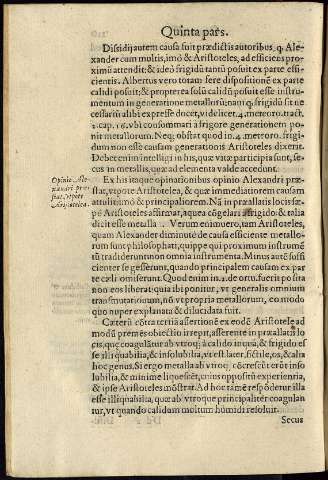 Quinta pars.
Dissidij autem causa fuit prædictis autoribus, q. Ale-
xander cum multis, imò & Aristoteles, ad efficiēs proxi-
mũ attendit: & ideò frigidũ tantũ posuit ex parte effi-
cientis. Albertus vero totam ferè dispositionē ex parte
calidi posuit; & propterea solũ calidũ posuit esse instru-
mentum in generatione metallorũ: nam q. frigidũ sit ne
cessariũ alibi expresse docet, vide licet .4. meteoro. tract.
2. cap. 16. vbi consommati à frigore generationem po-
nit metallorum. Neq; obstat quod in .4. meteoro. frigi-
dum non esse causam generationis Aristoteles dixerit.
Debet enim intelligi in his, quæ vitæ participia sunt, se-
cus in metallis, quæ ad elementa valde accedunt.
Opinio Ale-
xandri præ-
stat, vtpote
Aristotelica.
Ex his itaque opinationibus opinio Alexandri præ-
stat, vtpote Aristotelea, & quæ immediatiorem causam
attulit, imò & principaliorem. Nā in præallatis locis sæ-
pè Aristoteles affirmat, aquea cōgelari à frigido & talia
dicit esse metalla. Verum enimuero, tam Aristoteles,
quam Alexander diminutè de causa efficiente metallo-
rum sunt philosophati, quippe qui proximum instrumē
tũ tradiderunt non omnia instrumenta. Minus autē suffi
cienter se gesserunt, quando principalem causam ex par
te cæli omiserunt. Quod enim in .2. de ortu. fuerit posita
non eos liberat: quia ibi ponitur, vt generalis omnium
transmutationum, nō vt propria metallorum, eo modo
quo nuper explanata & dilucidata fuit.
Cæterũ cōtra tertiā assertionē ex eodē Aristotele ad
modũ premēs obiectio irrepit, asserente in præallatis lo
cis, quę coagulātur ab vtroq; à calido inquā, & frigido es
se illiquabilia, & insolubilia, vt est later, fictile, os, & alia
hoc genus. Si ergo metalla ab vtroq; cōcrescūt erūt inso
lubilia, & minime liquescēt, cuius oppositũ experientia,
& ipse Aristoteles mōstrat. Ad hoc tamē respōdetur illa
esse illiquabilia, quæ ab vtroque principaliter coagulan
tur, vt quando calidum multum humidi resoluit.
Secus